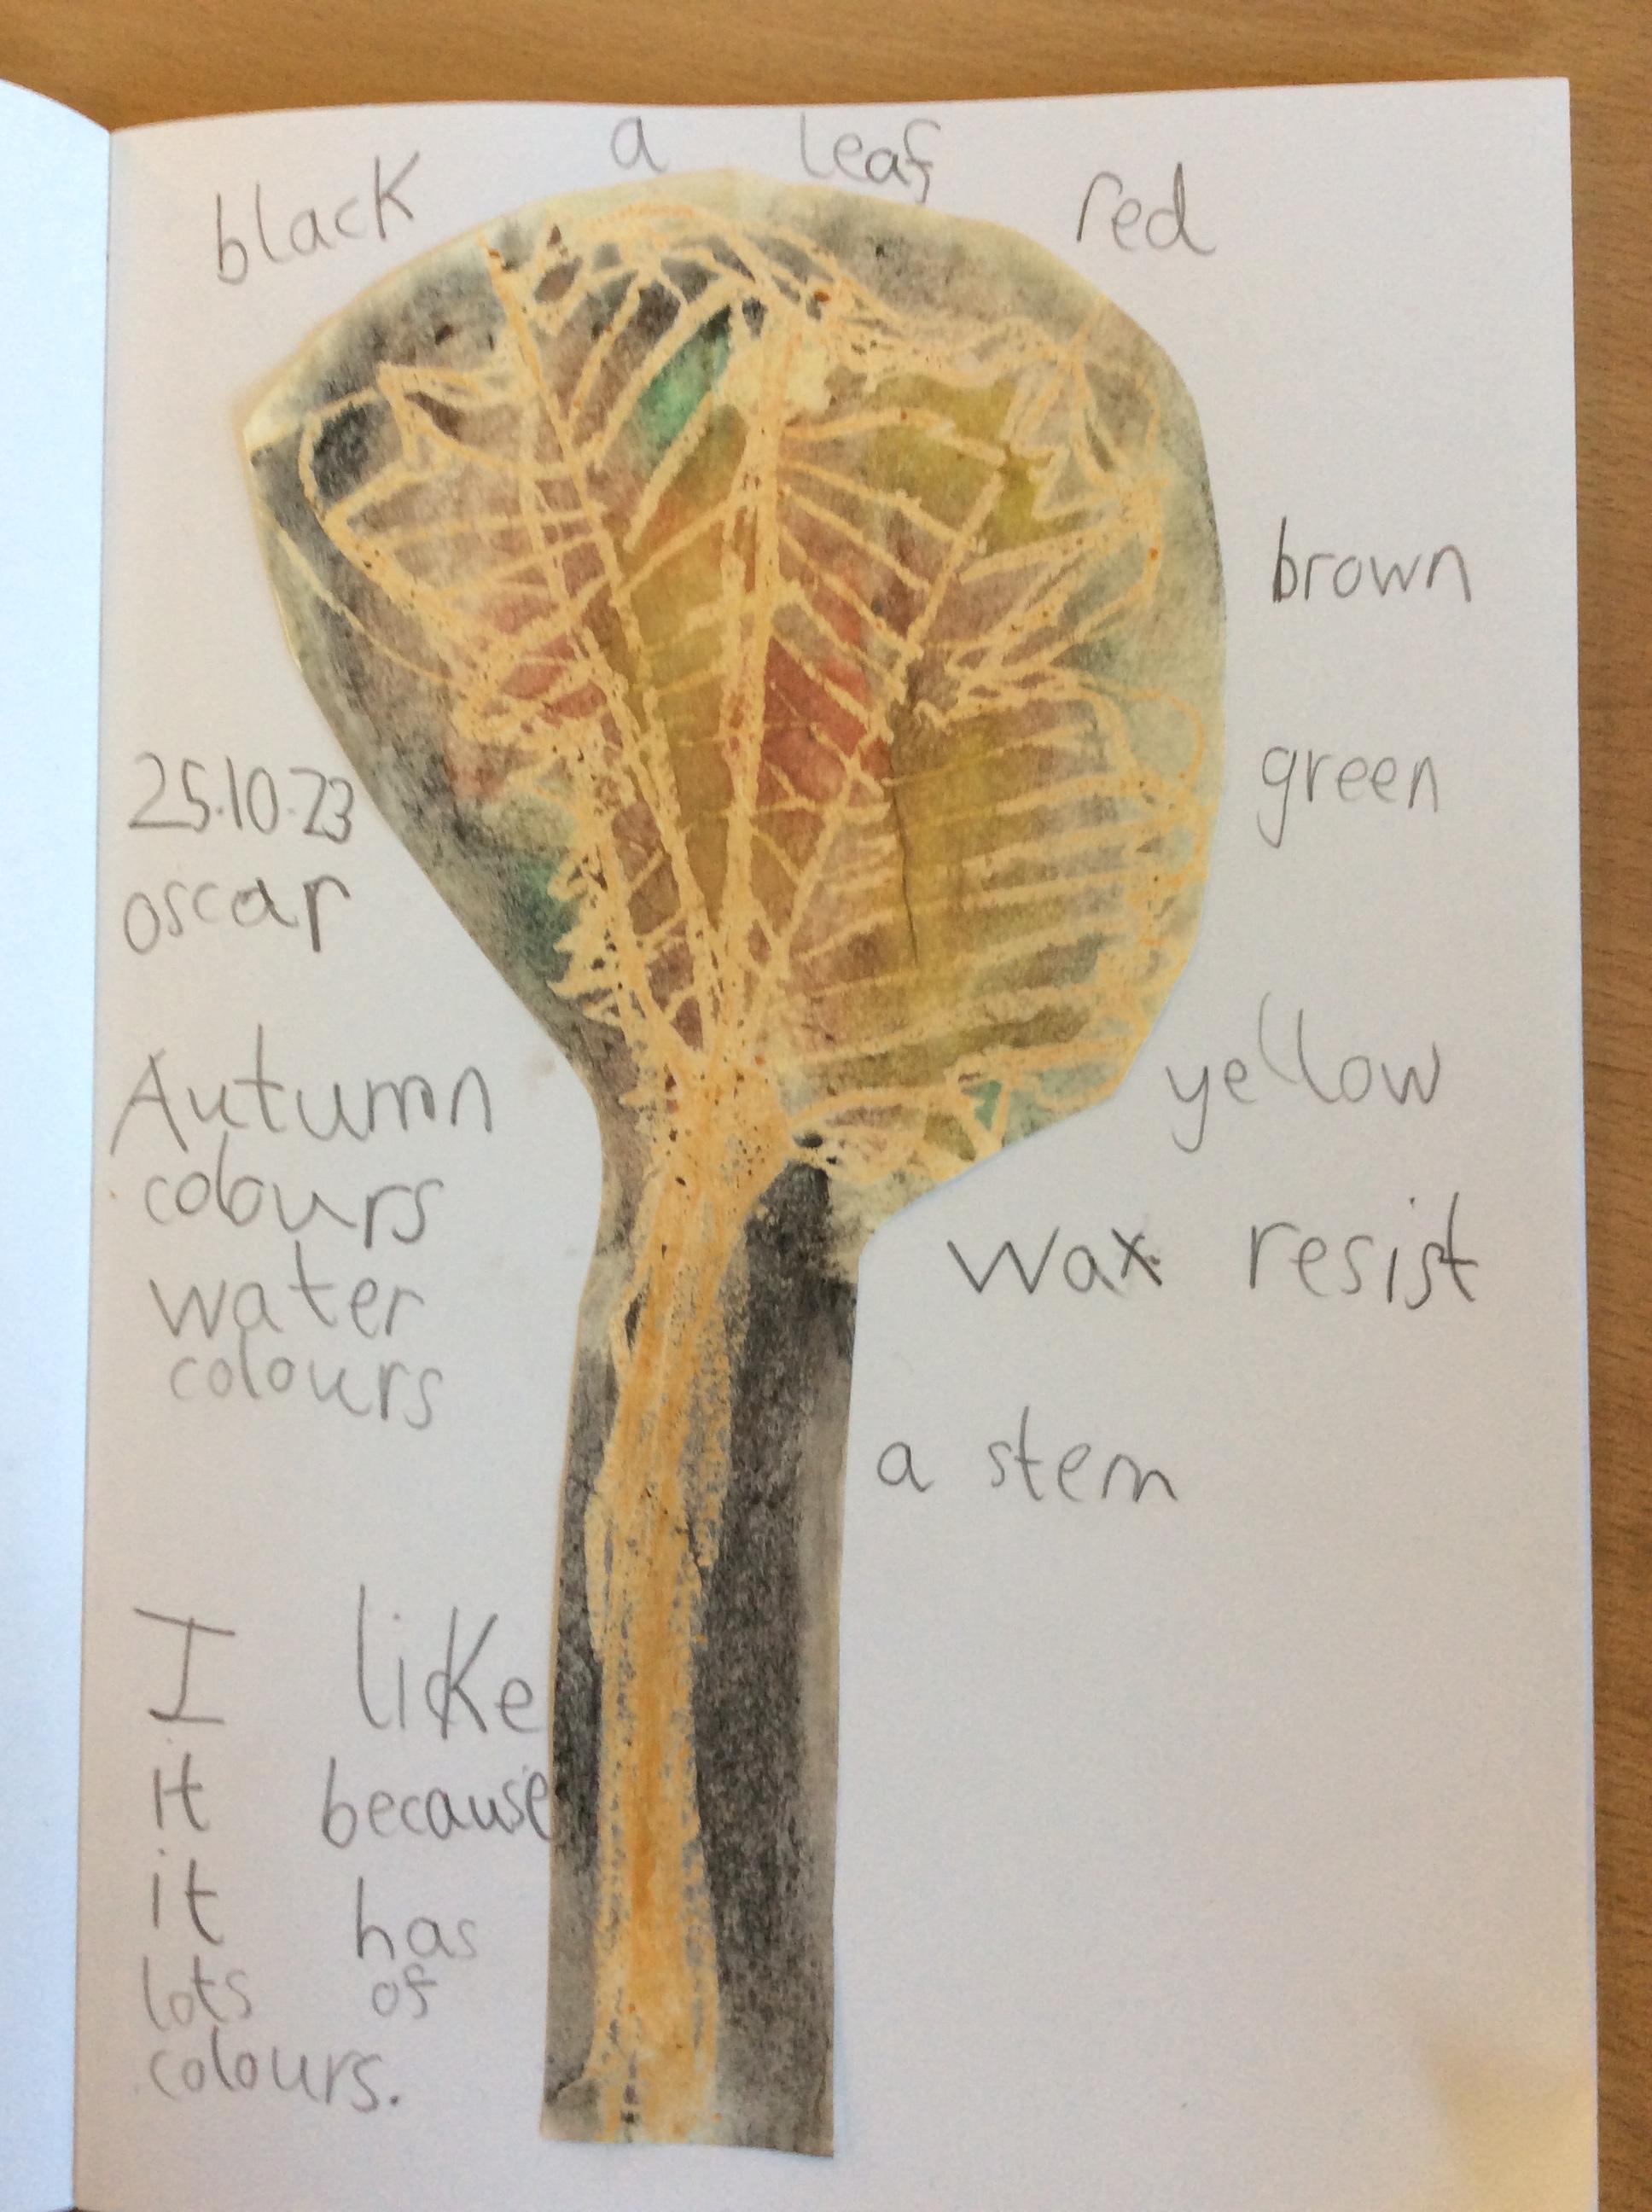 a leaf
black
red
brown
green
25.10.23
oscar
yellow
Autumn
colours
water
colours
wax resist
a stem
I like
it because
it has
lots of
colours.